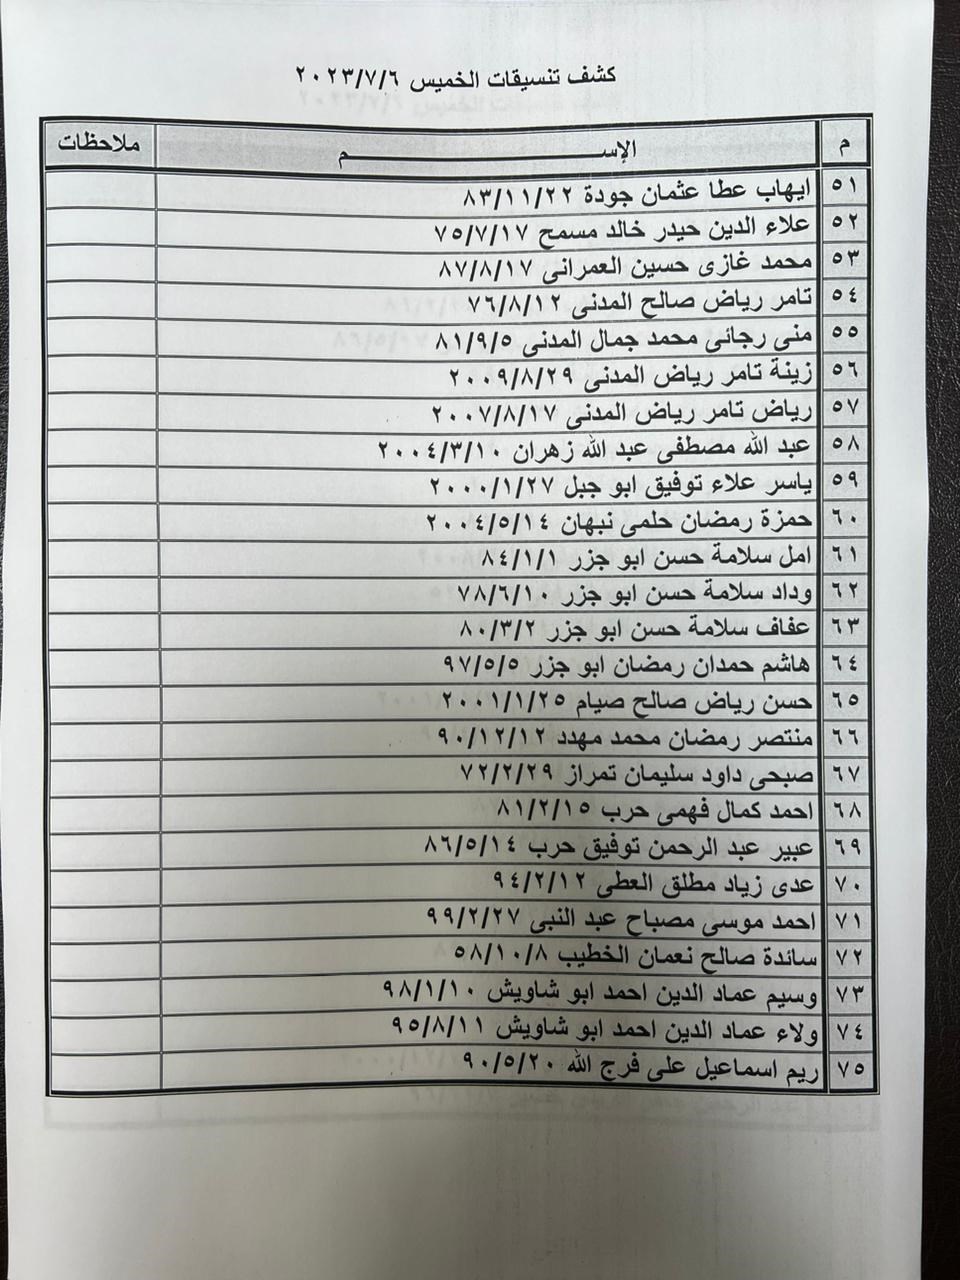 كشف تنسيقات الخميس ٢٠٢٣/٧/٦
م الإســــــــم ملاحظات
٥١ ايهاب عطا عثمان جودة ٨٣/١١/٢٢
٥٢ علاء الدين حيدر خالد مسمح ٧٥/٧/١٧
٥٣ محمد غازى حسين العمرانى ٨٧/٨/١٧
٥٤ تامر رياض صالح المدنى ٧٦/٨/١٢
٥٥ منى رجائى محمد جمال المدنى ٨١/٩/٥
٥٦ زينة تامر رياض المدنى ٢٠٠٩/٨/٢٩
٥٧ رياض تامر رياض المدنى ٢٠٠٧/٨/١٧
٥٨ عبد الله مصطفى عبد الله زهران ٢٠٠٤/٣/١٠
٥٩ ياسر علاء توفيق ابو جبل ٢٠٠٠/١/٢٧
٦٠ حمزة رمضان حلمى نبهان ٢٠٠٤/٥/١٤
٦١ امل سلامة حسن ابو جزر ٨٤/١/١
٦٢ وداد سلامة حسن ابو جزر ٧٨/٦/١٠
٦٣ عفاف سلامة حسن ابو جزر ٨٠/٣/٢
٦٤ هاشم حمدان رمضان ابو جزر ٩٧/٥/٥
٦٥ حسن رياض صالح صيام ٢٠٠١/١/٢٥
٦٦ منتصر رمضان محمد مهدد ٩٠/١٢/١٢
٦٧ صبحى داود سليمان تمراز ٧٢/٢/٢٩
٦٨ احمد كمال فهمى حرب ٨١/٢/١٥
٦٩ عبير عبد الرحمن توفيق حرب ٨٦/٥/١٤
٧٠ عدى زياد مطلق العطى ٩٤/٢/١٢
٧١ احمد موسى مصباح عبد النبى ٩٩/٢/٢٧
٧٢ سائدة صالح نعمان الخطيب ٥٨/١٠/٨
٧٣ وسيم عماد الدين احمد ابو شاويش ٩٨/١/١٠
٧٤ ولاء عماد الدين احمد ابو شاويش ٩٥/٨/١١
٧٥ ريم اسماعيل على فرج الله ٩٠/٥/٢٠